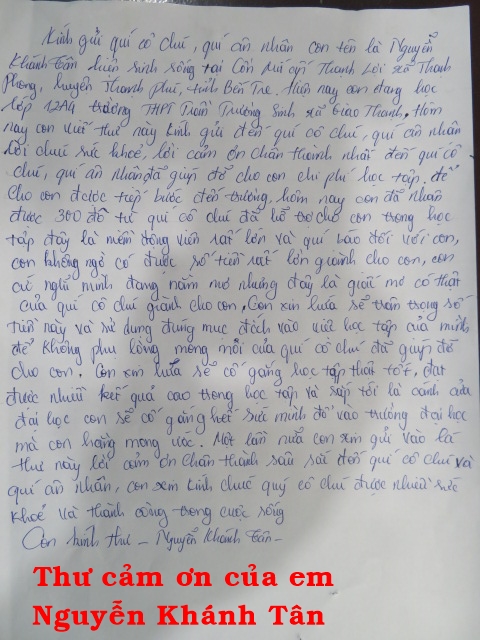 Kính gửi quí cô chú, quí ân nhân con tên là Nguyễn
Khánh Tân hiện sinh sống tại Cồn Mít ấp Thạnh Lợi xã Thạnh
Phong, huyện Thạnh Phú, tỉnh Bến Tre. Hiện nay con đang học
lớp 12A4 trường THPT Trần Trường Sinh xã Giao Thạnh. Hôm
nay con viết thư này kính gửi đến quí cô chú, quí ân nhân
lời chúc sức khoẻ, lời cảm ơn chân thành nhất đến quí cô
chú, quí ân nhân đã giúp đỡ cho con chi phí học tập, để
cho con được tiếp bước đến trường, hôm nay con đã nhận
được 300 đô từ quí cô chú đã hỗ trợ cho con trong học
tập đây là niềm động viên rất lớn và quí báo đối với con,
con không ngờ có được số tiền rất lớn giành cho con, con
cứ nghĩ mình đang nằm mơ nhưng đây là giấc mơ có thật
của quí cô chú giành cho con, Con xin hứa sẽ trân trọng số
tiền này và sử dụng đúng mục đích vào việc học tập của mình
để không phụ lòng mong mỏi của quí cô chú đã giúp đỡ
cho con. Con xin hứa sẽ cố gắng học tập thật tốt, đạt
được nhiều kết quả cao trong học tập và sắp tới là cánh cửa
đại học con sẽ cố gắng hết sức mình đỗ vào trường đại học
mà con hằng mong ước. Một lần nữa con xin gửi vào lá
thư này lời cảm ơn chân thành sâu sắc đến quí cô chú và
quí ân nhân, con xem kính chúc quý cô chú được nhiều sức
khoẻ và thành công trong cuộc sống
Con kính thư - Nguyễn Khánh Tân -
Thư cảm ơn của em
Nguyễn Khánh Tân